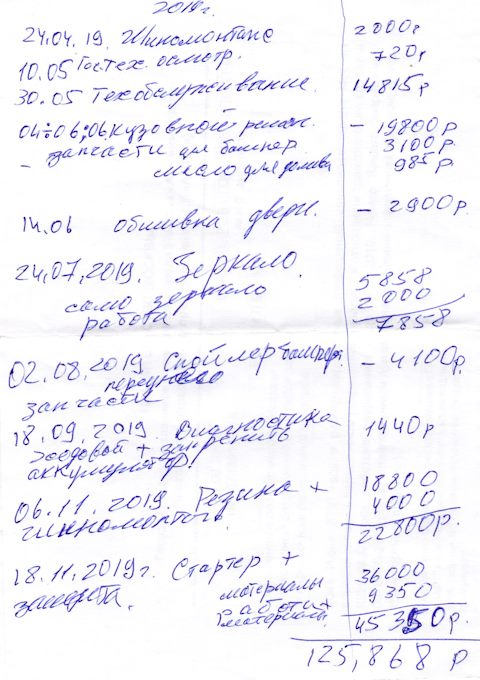 2019г.
24.04.19. Шиномонтаж 2000р
10.05 Гостех. осмотр. 720р
30.05 Техобслуживание. 14815р
04÷06;06 Кузовной ремон. - 19800р
- запчасти для бампер 3100р
масло для долива 985р
14.06 обшивка двери. - 2900р.
24.07.2019. Зеркало.
само зеркало 5858
работа 2000
7858
02.08.2019 Спойлер бампера. - 4100р.
переднего
запчасти
18.09.2019. Диагностика 1440р
ходовой + закрепить
аккумулятор!
06.11.2019. Резина + 18800
шиномонтаж. 4000
22800р.
18.11.2019г. Стартер + 36000
материалы 9350
работы +
материалы
45350р.
125,868 р